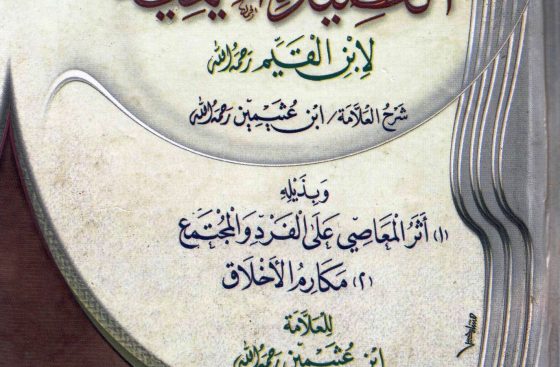 لِابْنِ الْقَيِّمِ رَحِمَهُ اللهُ
شَرْحُ العُلَّامَة/ ابْنِ عُثَيْمِين رَحِمَهُ اللهُ
وَبِذَيْلِهِ
(١) أَثَرُ الْمَعَاصِي عَلَى الْفَرْدِ وَالْمُجْتَمَعِ
(٢) مَكَارِمُ الأَخْلَاقِ
لِلعُلَّامَة
ابْنِ عُثَيْمِين رَحِمَهُ اللهُ